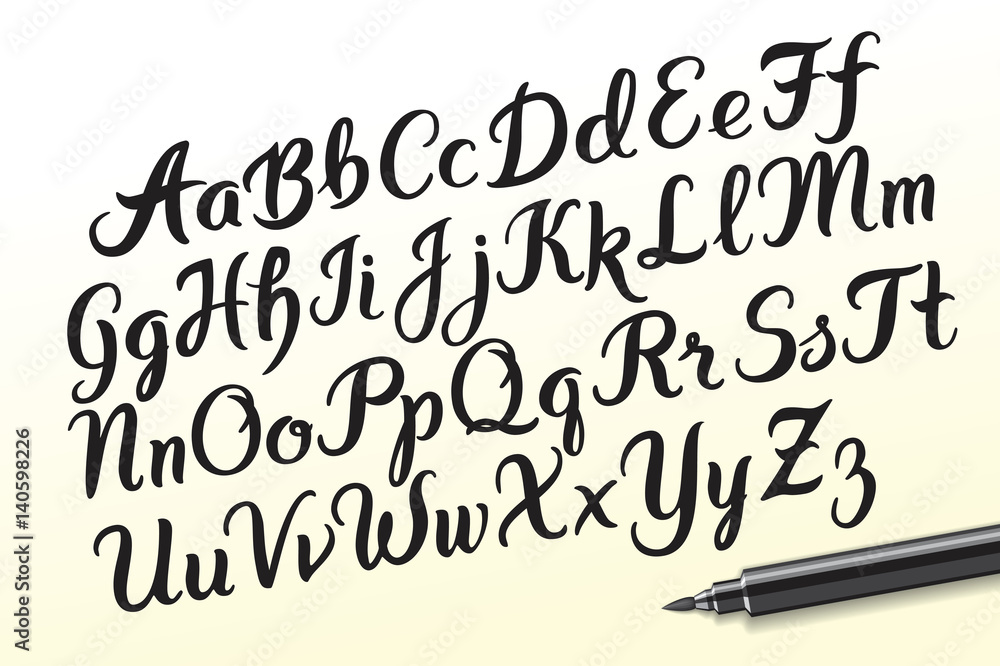 Aa Bb Cc Dd Ee Ff
Gg Hh Ii Jj Kk Ll Mm
Nn Oo Pp Qq Rr Ss Tt
Uu Vv Ww Xx Yy Zz
Adobe Stock | #140598226